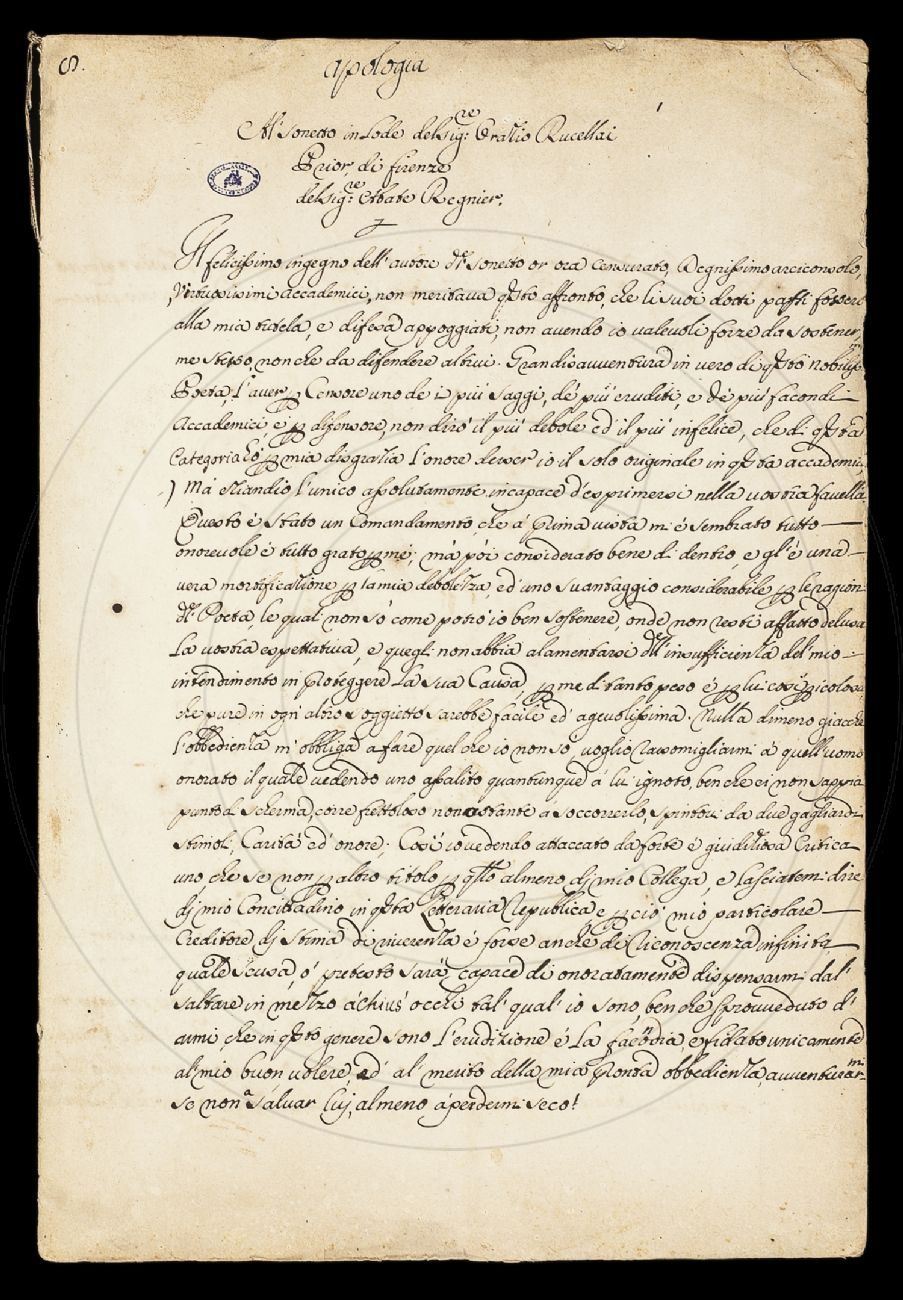 8.
apologia
Al' Sonetto in Lode del Sig:re Oratio Rucellai
Prior, di firenze
del Sig:re Abate Regnier.
Il felicissimo ingegno dell' autore dl Sonetto or ora Censurato, Degnissimo arciconsolo,
Virtuosissimi accademici, non meritaua qsto affronto, che li suoi dotti passi fossero
alla mia tutela, e difesa appoggiati, non auendo io valeuoli forze da sostener
me stesso, non che da difendere altrui. Grandisauuentura in vero di qsto nobiliss.mo
Poeta, l'auer p Censore uno de i più saggi, de' più eruditi, e de' più facondi
Accademici e p difensore, non dirò il più debole ed il più infelice, che di qsta
Categoria ò p mia disgratia l'onore desser io il solo originale in qsta accademia,
) Mà etiandio l'unico assolutamente incapace d'esprimersi nella vostra fauella
Questo è stato un Comandamento, che à prima vista mi è sembrato tutto
onoreuole è tutto grato p mè; mà poi considerato bene di dentro, e gl'è una
vera mortificatione p la mia debolezza, ed' uno suantaggio considerabile p le ragioni
dl Poeta, le quali non sò come potrò io ben sostenere, onde non resti affatto delusa
la vostra espettatiua, e quegli non abbia a lamentarsi dll' insufficienza del' mio
intendimento in proteggere la sua Causa, p me di tanto peso è p lui così picolosa
che pure in ogn' altro soggietto sarebbe facile ed' ageuolissima. Nulla dimeno giacche
l'obbedienza m' obbliga a fare quel che io non sò, voglio rassomigliarmi à quell' uomo
onorato il quale vedendo uno assalito quantunque à lui ignoto, ben che ei non sappia
punto di scherma, corre frettoloso non ostante a soccorrerlo, spintoci da due gagliardi
stimoli, Carità ed' onore; Così io vedendo attaccato da forte è giuditiosa Critica
uno che se non p altro titolo, p qsto almeno dj mio Collega, e lasciatemi dire
dj mio Concittadino in qsta Letteraria Republica e p ciò mio particolare
Creditore dj stima di riuerenza è forse anche di riconoscenza infinita
quale scusa, ò pretesto sarà capace di onoratamente dispensarmi dal'
saltare in mezzo à chius' occhi tal' qual' io sono, ben che sproueduto d'
armi, che in qsto genere sono l'erudizione è la facōdia, e fidato unicamente
al' mio buon volere, ed' al' merito della mia pronta obbedienza, auuenturarmi
se non à saluar luj, almeno à perdermi seco!